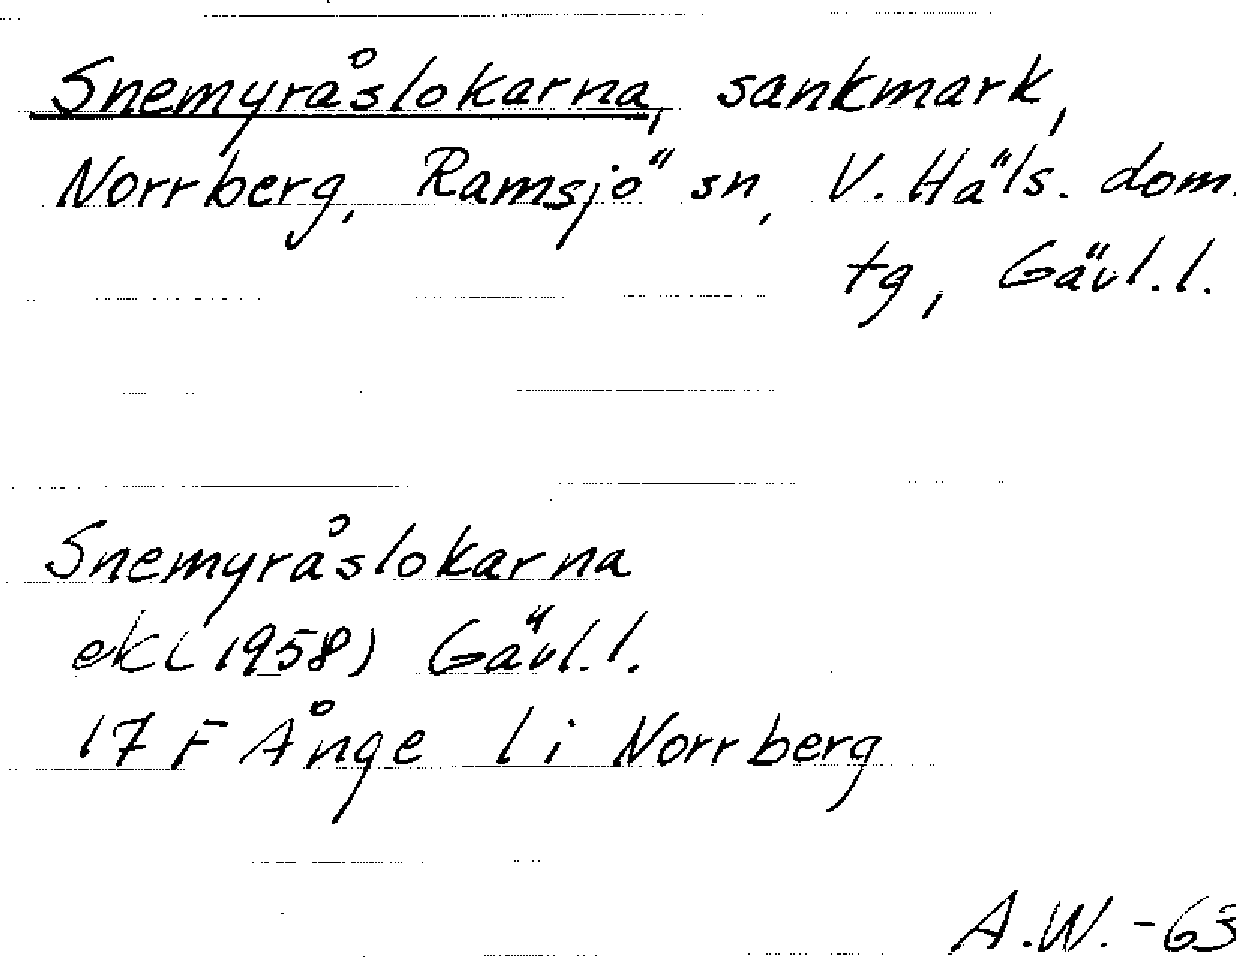 Snemyråslokarna, sankmark,
Norrberg, Ramsjö sn, V. Häls. dom.
tg, Gävl. l.
Snemyråslokarna
ekl (1958) Gävl. l.
17 F Ånge l i Norrberg
A.W. -63